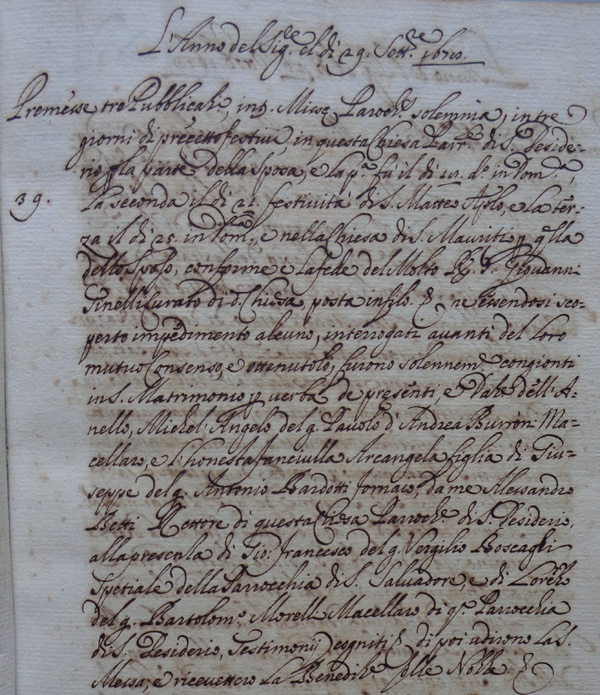 L'Anno del Sig.re el dì 29. Sett.re 1670.
Premesse tre Pubblicat.i, in 3. Misse Paroch.i solemnia, in tre
giorni di precetto festivi in questa Chiesa Parr.le di S. Deside-
rio p la parte della Sposa, e la p.a fu il dì d.o in Dom.ca,
39.
La seconda il dì 21. festività di S. Matteo Aplo, e la ter-
za il dì 25. in Dom.ca, e nella Chiesa di S. Mauritio p q.lla
dello Sposo, conforme e la fede del Molto R. S. Giovanni
Tinelli Curato di d. Chiesa, posta in filo. & ne essendosi sco-
perto impedimento alcuno, interrogati avanti del loro
mutuo Consenso, e ottenutolo, furono solennem.e congionti
in S. Matrimonio p verba de presenti, e Dat.e dell'A-
nello, Michel' Angelo del q. Pavolo d'Andrea Burroni Ma-
cellaro, e l'honesta fanciulla Arcangela figlia di Giu-
seppe del q. Antonio Bardotti fornaio, da me Alessandro
Betti Rettore di questa Chiesa Paroch.le di S. Desiderio,
alla presenza di Gio: francesco del q. Vergilio Boscagli
Spetiale della Parrocchia di S. Salvadore, e di Lorenzo
del q. Bartolom.o Morelli Macellaro di q.a Parrochia
di S. Desiderio, Testimonij cogniti & di poi udirono la S.
Messa, e riceverono la Benedit.e delle Nozze &